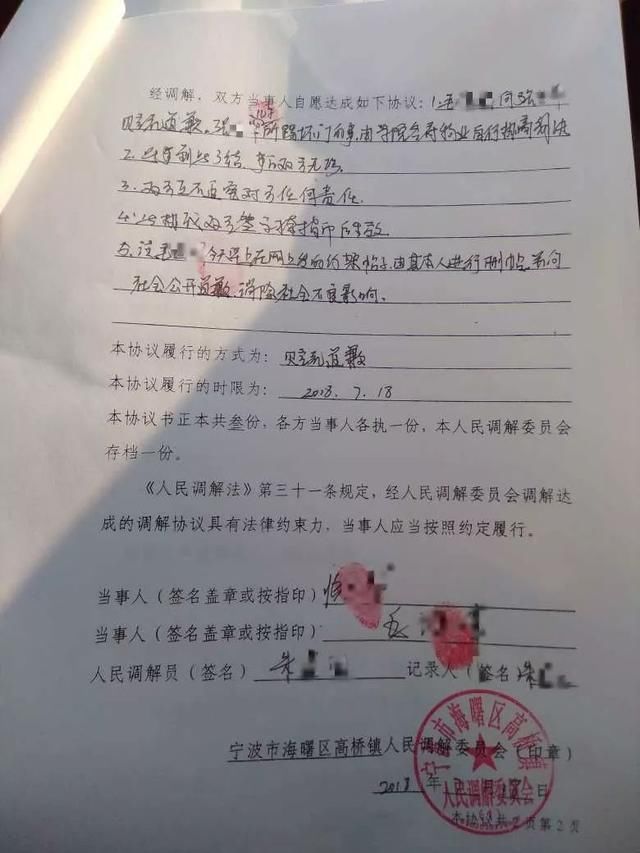 经调解，双方当事人自愿达成如下协议：1.毛 向张
赔礼道歉。张 所踢坏门的事由学院会荷物业自行协商解决
2. 此事到此了结，事后双方无
3. 双方互不追究对方任何责任.
4. 此协议双方签字捺指印后生效.
5. 让毛 今天早上在网上发的约架帖子.由其本人进行删帖.并向
社会公开道歉，消除社会不良影响。
本协议履行的方式为：赔礼道歉
本协议履行的时限为：2018.7.18
本协议书正本共叁份，各方当事人各执一份，本人民调解委员会
存档一份。
《人民调解法》第三十一条规定，经人民调解委员会调解达
成的调解协议具有法律约束力，当事人应当按照约定履行。
当事人（签名盖章或按指印）
当事人（签名盖章或按指印）毛
人民调解员（签名）朱 记录人（签名）朱
宁波市海曙区高桥镇人民调解委员会（印章）
2018年 月 日
宁波市海曙区高桥镇
人民调解委员会
本协议共2页第2页